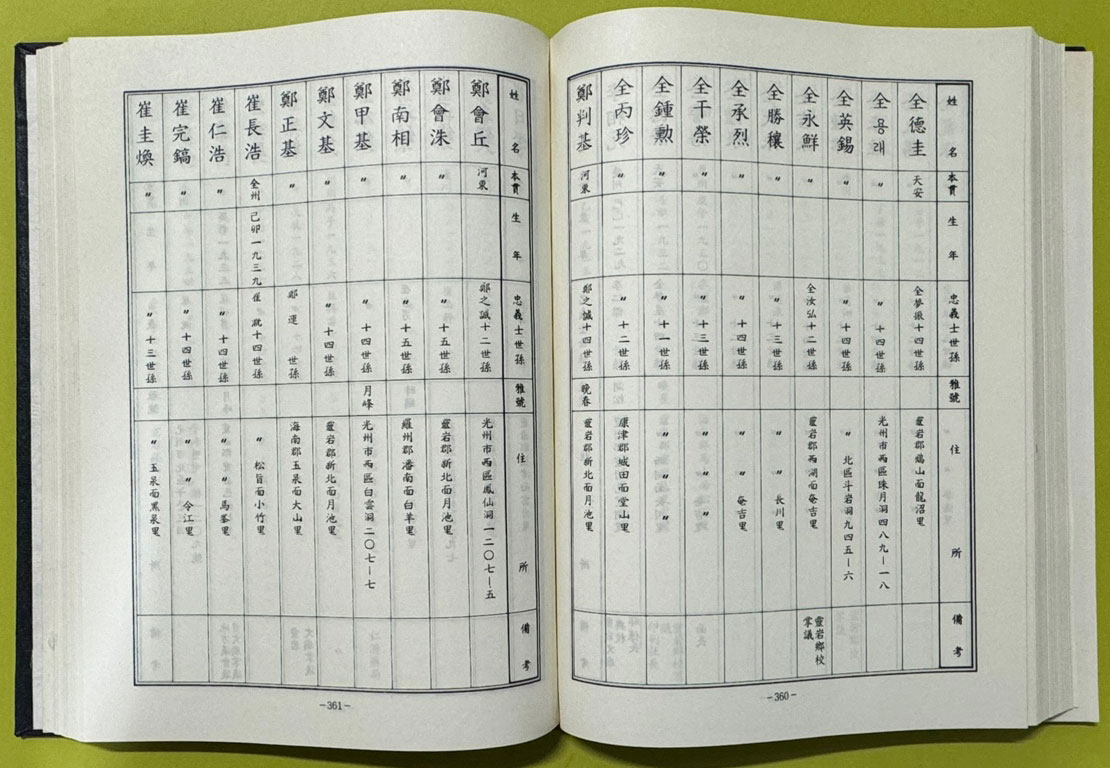 姓名 本貫 生年 忠義士世孫 雅號 住所 備考
全德圭 天安 全夢 十四世孫 靈岩郡鶴山面龍沼里
全용래 〃 〃 十四世孫 光州市西區珠月洞四八九―一八
全英錫 〃 〃 十四世孫 〃 北區斗岩洞九四五―六
全永鮮 〃 全汝弘十二世孫 靈岩郡西湖面奄吉里 靈岩鄕校掌議
全勝穰 〃 〃 十三世孫 〃 〃 長川里
全承烈 〃 〃 十四世孫 〃 〃 奄吉里
全干榮 〃 〃 十三世孫 〃 〃 〃
全鍾勳 〃 〃 十一世孫 〃 〃 〃
全丙珍 〃 〃 十二世孫 康津郡城田面堂山里
鄭判基 河東 鄭之誠十四世孫 晩春 靈岩郡新北面月池里
－360－
姓名 本貫 生年 忠義士世孫 雅號 住所 備考
鄭會丘 河東 鄭之誠十二世孫 光州市西區鳳仙洞一二〇七―五
鄭會洙 〃 〃 十五世孫 靈岩郡新北面月池里
鄭南相 〃 〃 十五世孫 羅州郡潘南面白羊里
鄭甲基 〃 〃 十四世孫 月峰 光州市西區白雲洞二〇七―七
鄭文基 〃 〃 十四世孫 靈岩郡新北面月池里
鄭正基 〃 鄭運 世孫 海南郡玉泉面大山里
崔長浩 全州 己卯一九三九 崔 十四世孫 〃 松旨面小竹里
崔仁浩 〃 〃 十四世孫 〃 〃 馬峯里
崔完鎬 〃 〃 十四世孫 〃 〃 今江里
崔圭煥 〃 〃 十三世孫 〃 玉泉面黑泉里
－361－